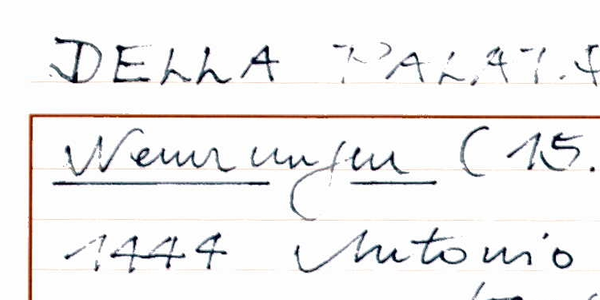 DELLA PALAT
Nennungen (15.
1444 Antonio